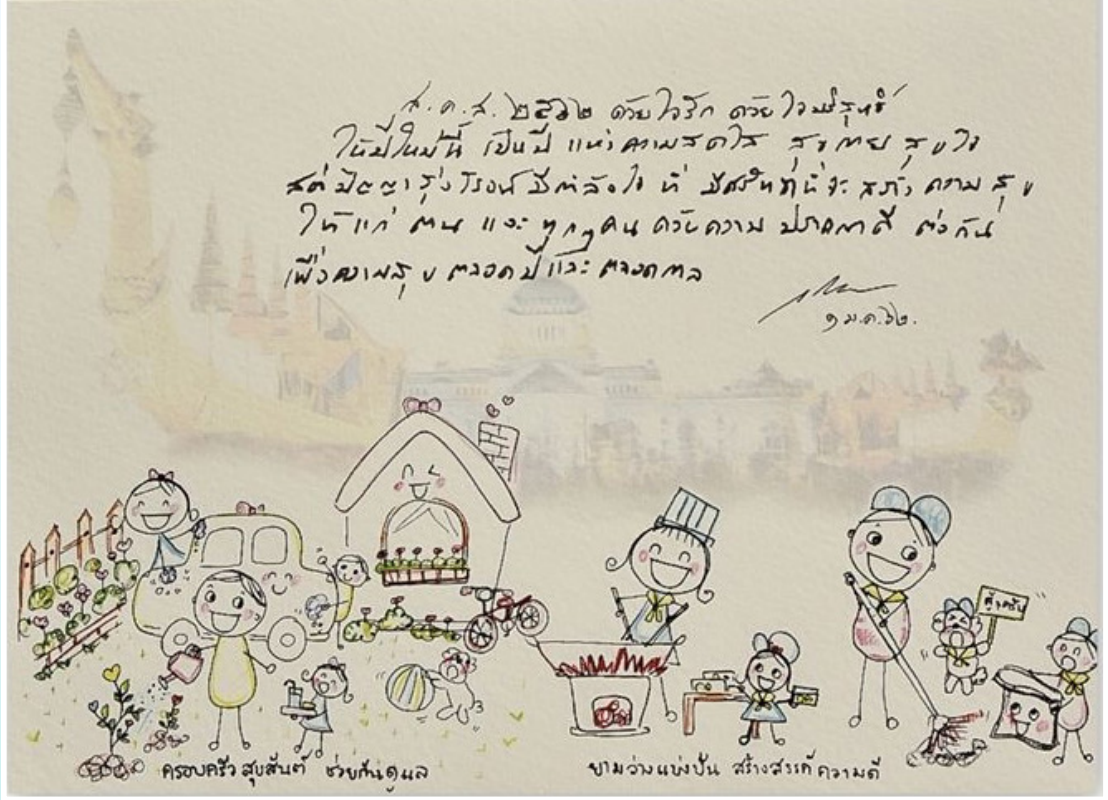 ส.ค.ส. ๒๕๖๒ ด้วยใจรัก ด้วยใจบริสุทธิ์
ให้ปีใหม่นี้ เป็นปี แห่งความสดใส สุขกาย สุขใจ
สติปัญญารุ่งโรจน์ มีกำลังใจ ที่ มีศรัทธาที่จะ สร้าง ความสุข
ให้แก่ ตน และ ทุกๆคน ด้วยความ ปรารถนาดี ต่อกัน
เพื่อความสุข ตลอดปี และ ตลอดกาล
๑ ม.ค.๖๒.
ครอบครัว สุขสันต์ ช่วยกันดูแล
ยามว่างแบ่งปัน สร้างสรรค์ ความดี